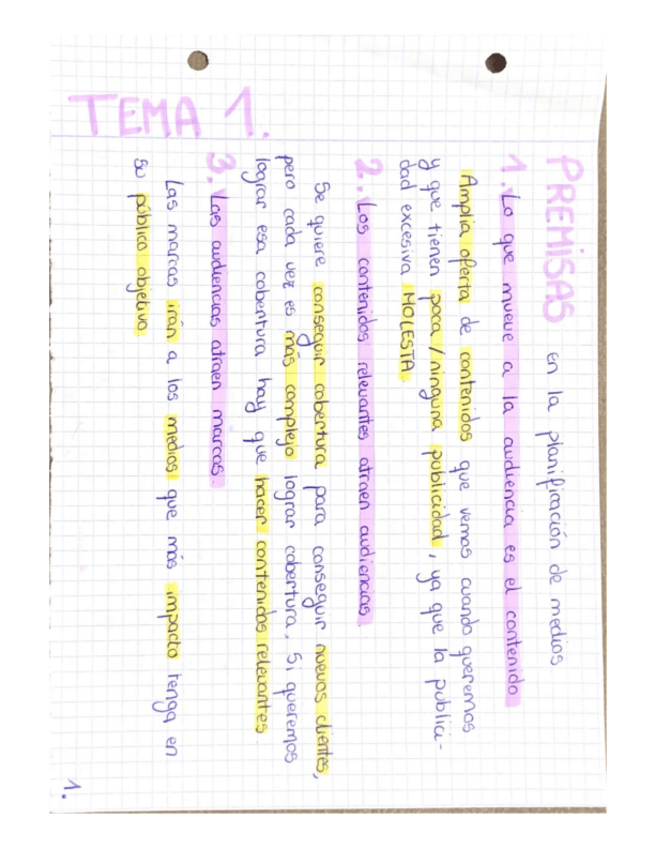 TEMA 1.
PREMISAS en la planificación de medios
1. Lo que mueve a la audiencia es el contenido
Amplia oferta de contenidos que vemos cuando queremos
y que tienen poca/ninguna publicidad, ya que la publici-
dad excesiva MOLESTA.
2. Los contenidos relevantes atraen audiencias.
Se quiere conseguir cobertura para conseguir nuevos clientes,
pero cada vez es más complejo lograr cobertura, si queremos
lograr esa cobertura hay que hacer contenidos relevantes
3. Las audiencias atraen marcas.
Las marcas irán a los medios que más impacto tenga en
su público objetivo
1.